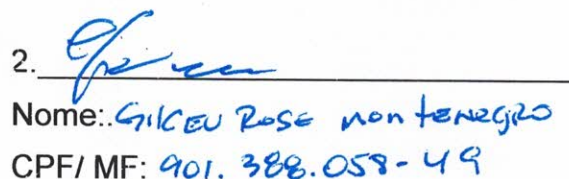 2.
Nome:. GilCEU ROSE MontENEGRO
CPF/ MF: 901.388.058-49